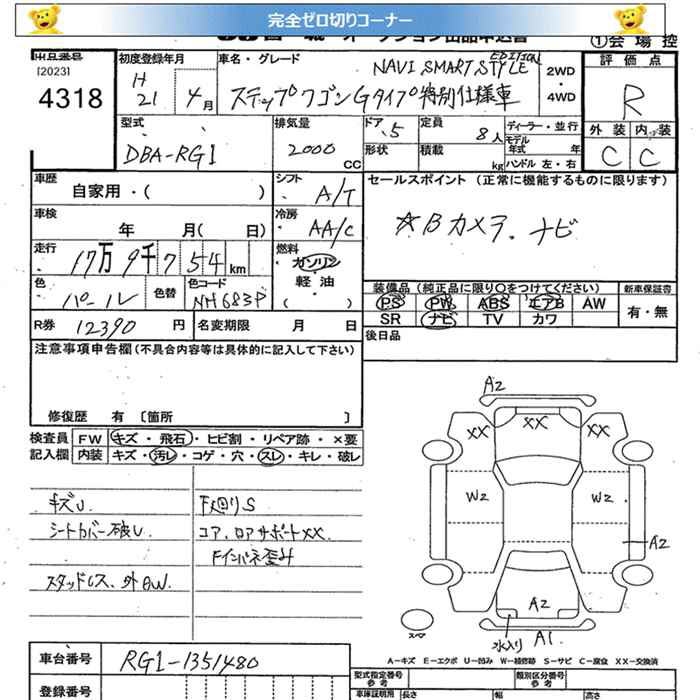 完全ゼロ切りコーナー
①会場控
出品番号
[2023]
4318
初度登録年月
H
21 4月
車名・グレード
NAVI SMART STYLE EDITION
ステップワゴンGタイプ特別仕様車
2WD
・
4WD
評価点
R
外装 内装
C C
型式
DBA-RG1
排気量
2000
CC
ドア
5
形状
定員
8人
積載
kg
ディーラー・並行
モデル年式 年
ハンドル 左・右
車歴
自家用・( )
シフト
A/T
セールスポイント (正常に機能するものに限ります)
☆Bカメラ、ナビ
車検
年 月( 日)
冷房
AA/C
走行
17万9千754km
燃料
ガソリン
軽油
( )
色
パール
色替
色コード
NH683P
装備品 (純正品に限り〇をつけてください)
PS PW ABS エアB AW
SR ナビ TV カワ
新車保証書
有・無
R券 12390円
名変期限 月 日
後日品
注意事項申告欄(不具合内容等は具体的に記入して下さい)
修復歴 有 〔箇所 〕
検査員
記入欄
FW キズ・飛石・ヒビ割・リペア跡・×要
内装 キズ・汚レ・コゲ・穴・スレ・キレ・破レ
キズU
シートカバー破U
スタッドレス、外BW.
F廻りS
コア、ロアサポートXX.
Fインパネ歪み
A2
XX
XX
XX
W2
W2
A2
A2
水入り
A1
スペア
A-キズ E-エクボ U-凹み W-補修跡 S-サビ C-腐食 XX-交換済
車台番号
RG1-1351480
登録番号
型式指定番号
参考
類別区分番号
参考
車庫証明用
長さ
幅
高さ